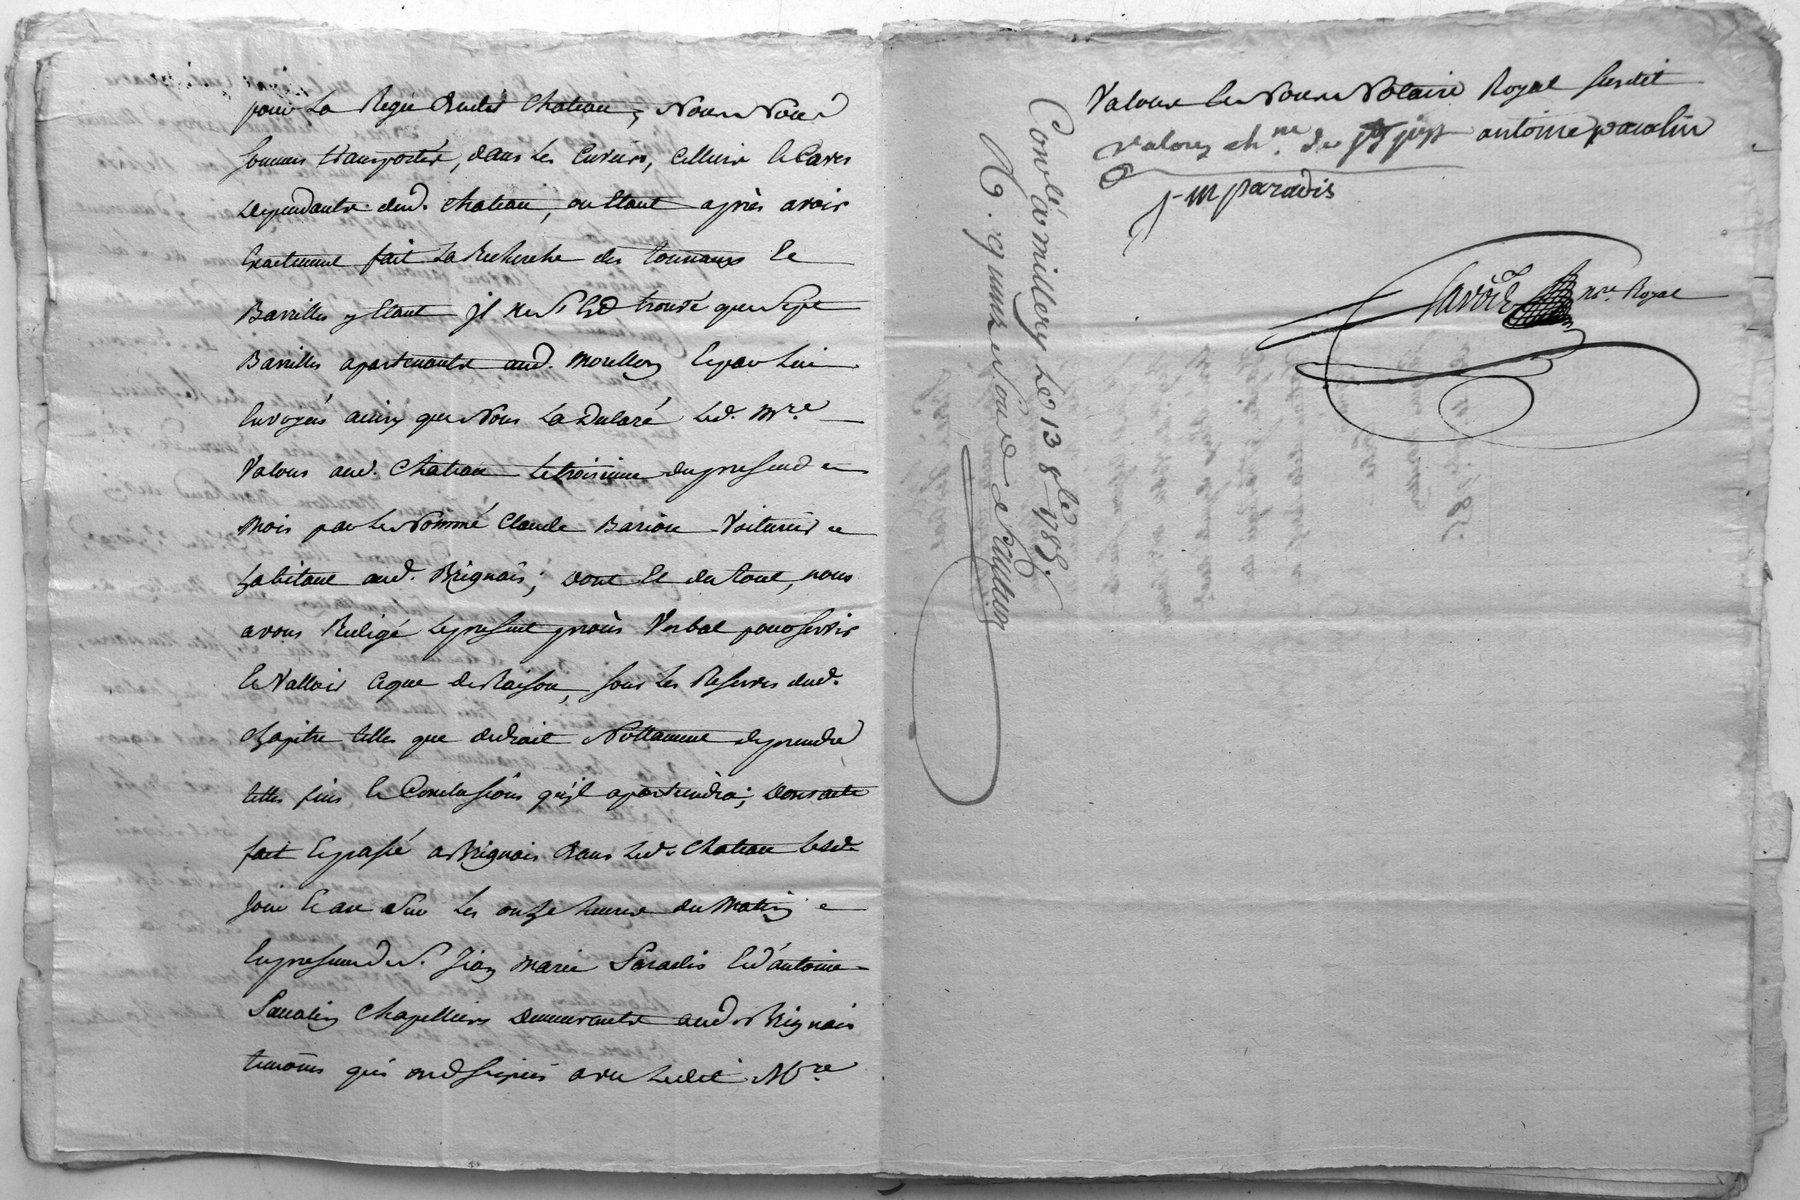 pour La Regie dudit Chateau, Nous Nous
sommes transportés, dans Les Cuviers, Celliers et Caves
Dependants dud. Chateau, ou Etant après avoir
Exactement fait La Recherche des Tonneaux et
Barrilles y Etant jl ne s'est trouvé que sept
Barrilles apartenants aud. Morellon et par Lui
Envoyés ainsy que Nous La Declaré Led. Mre
Valous aud. Chateau Le troisieme du present
Mois par Le Nommé Claude Barion Voiturier
habitant aud. Brignais; Dont et du tout, nous
avons Redigé Le present procès Verbal pour servir
et Valloir ce que de Raison, sous Les Reserves dud.
Chapitre telles que de droit Nottament de prendre
telles fins et Conclusions qu'jl apartiendra; Dont acte
fait et passé a Brignais dans Led. Chateau Lesd.
Jour et an sur Les onze heures du Matin
En presence de Sr. Jean Marie Paradis et d'antoine
Paualin Chapelliers Demeurants aud. Brignais
temoins qui ont signés avec Ledit Mre
Valous et Nous Notaire Royal susdit
Valous chne. de St just antoine paualin
j-m paradis
Nre. Royal
Conlé a millery Le 13 8bre 1785.
R. quinze sous